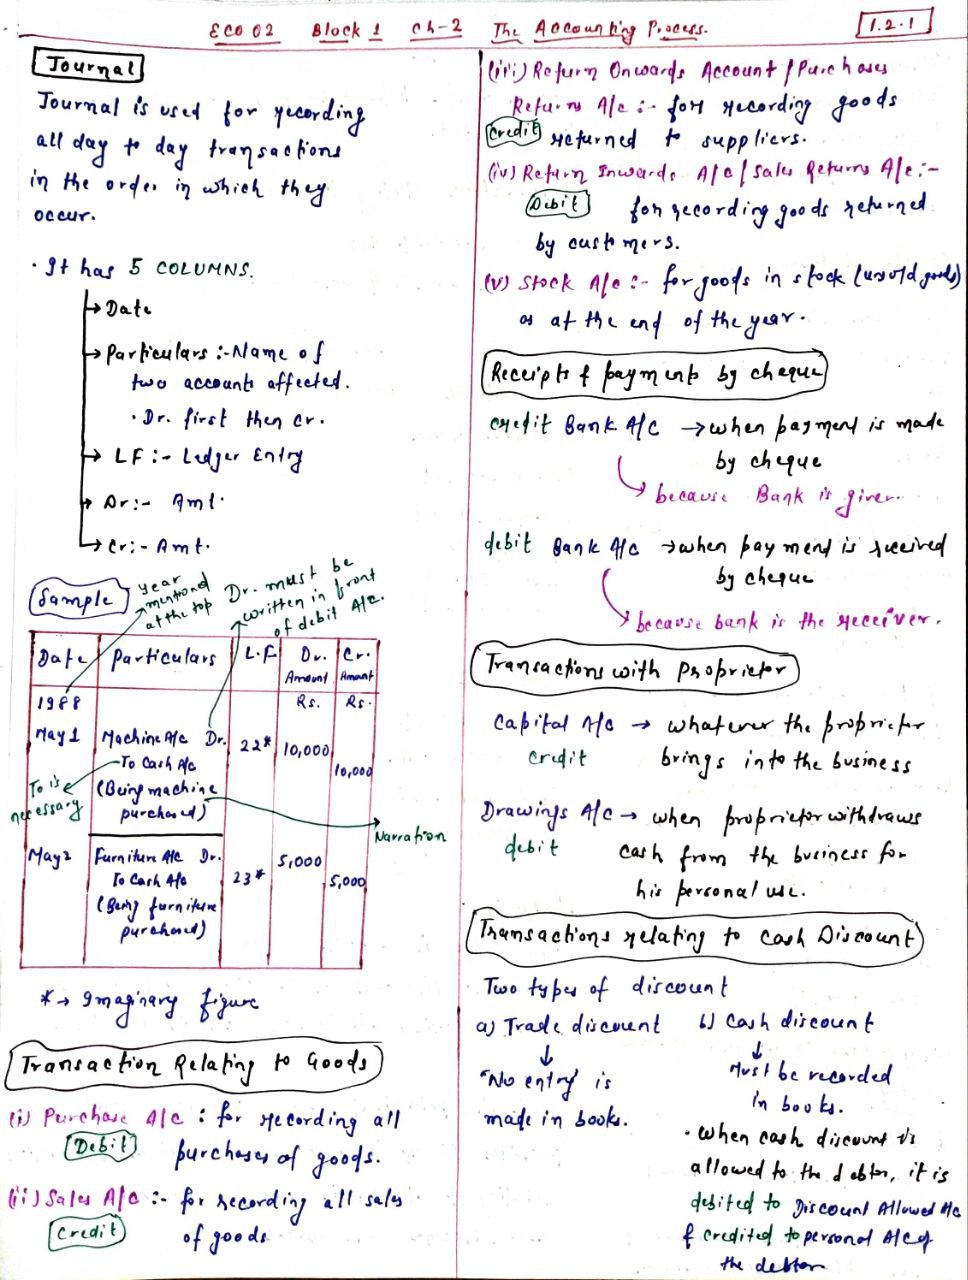 ECO 02 Block 1 Ch-2 The Accounting Process.
1.2.1
Journal
Journal is used for recording
all day to day transactions
in the order in which they
occur.
· It has 5 COLUMNS.
→ Date
→ Particulars :- Name of
two accounts affected.
· Dr. first then Cr.
→ LF :- Ledger Entry
→ Dr :- Amt.
→ Cr :- Amt.
Sample
year
mentiond
at the top
Dr. must be
written in front
of debit A/c.
Date Particulars L.F Dr. Amount Cr. Amount
1988 Rs. Rs.
May 1 Machine A/c Dr. 22* 10,000
To Cash A/c 10,000
To is
necessary
(Being machine
purchased)
Narration
May 2 Furniture A/c Dr. 5,000
To Cash A/c 23* 5,000
(Being furniture
purchased)
* → Imaginary figure
Transaction Relating to Goods
(i) Purchase A/c : for recording all
Debit purchases of goods.
(ii) Sales A/c :- for recording all sales
Credit of goods.
(iii) Return Onwards Account / Purchases
Returns A/c :- for recording goods
Credit returned to suppliers.
(iv) Return Inwards A/c / Sales Returns A/c :-
Debit for recording goods returned
by customers.
(v) Stock A/c :- for goods in stock (unsold goods)
as at the end of the year.
Receipts & payments by cheque
credit Bank A/C → when payment is made
by cheque
because Bank is giver.
debit Bank A/c → when payment is received
by cheque
because bank is the receiver.
Transactions with Proprietor
Capital A/c → whatever the proprietor
credit brings into the business
Drawings A/c → when proprietor withdraws
debit cash from the business for
his personal use.
Transactions relating to Cash Discount
Two types of discount
a) Trade discount b) Cash discount
↓
"No entry" is
made in books.
↓
Must be recorded
in books.
· When cash discount is
allowed to the debtor, it is
debited to Discount Allowed A/c
& credited to personal A/c of
the debtor